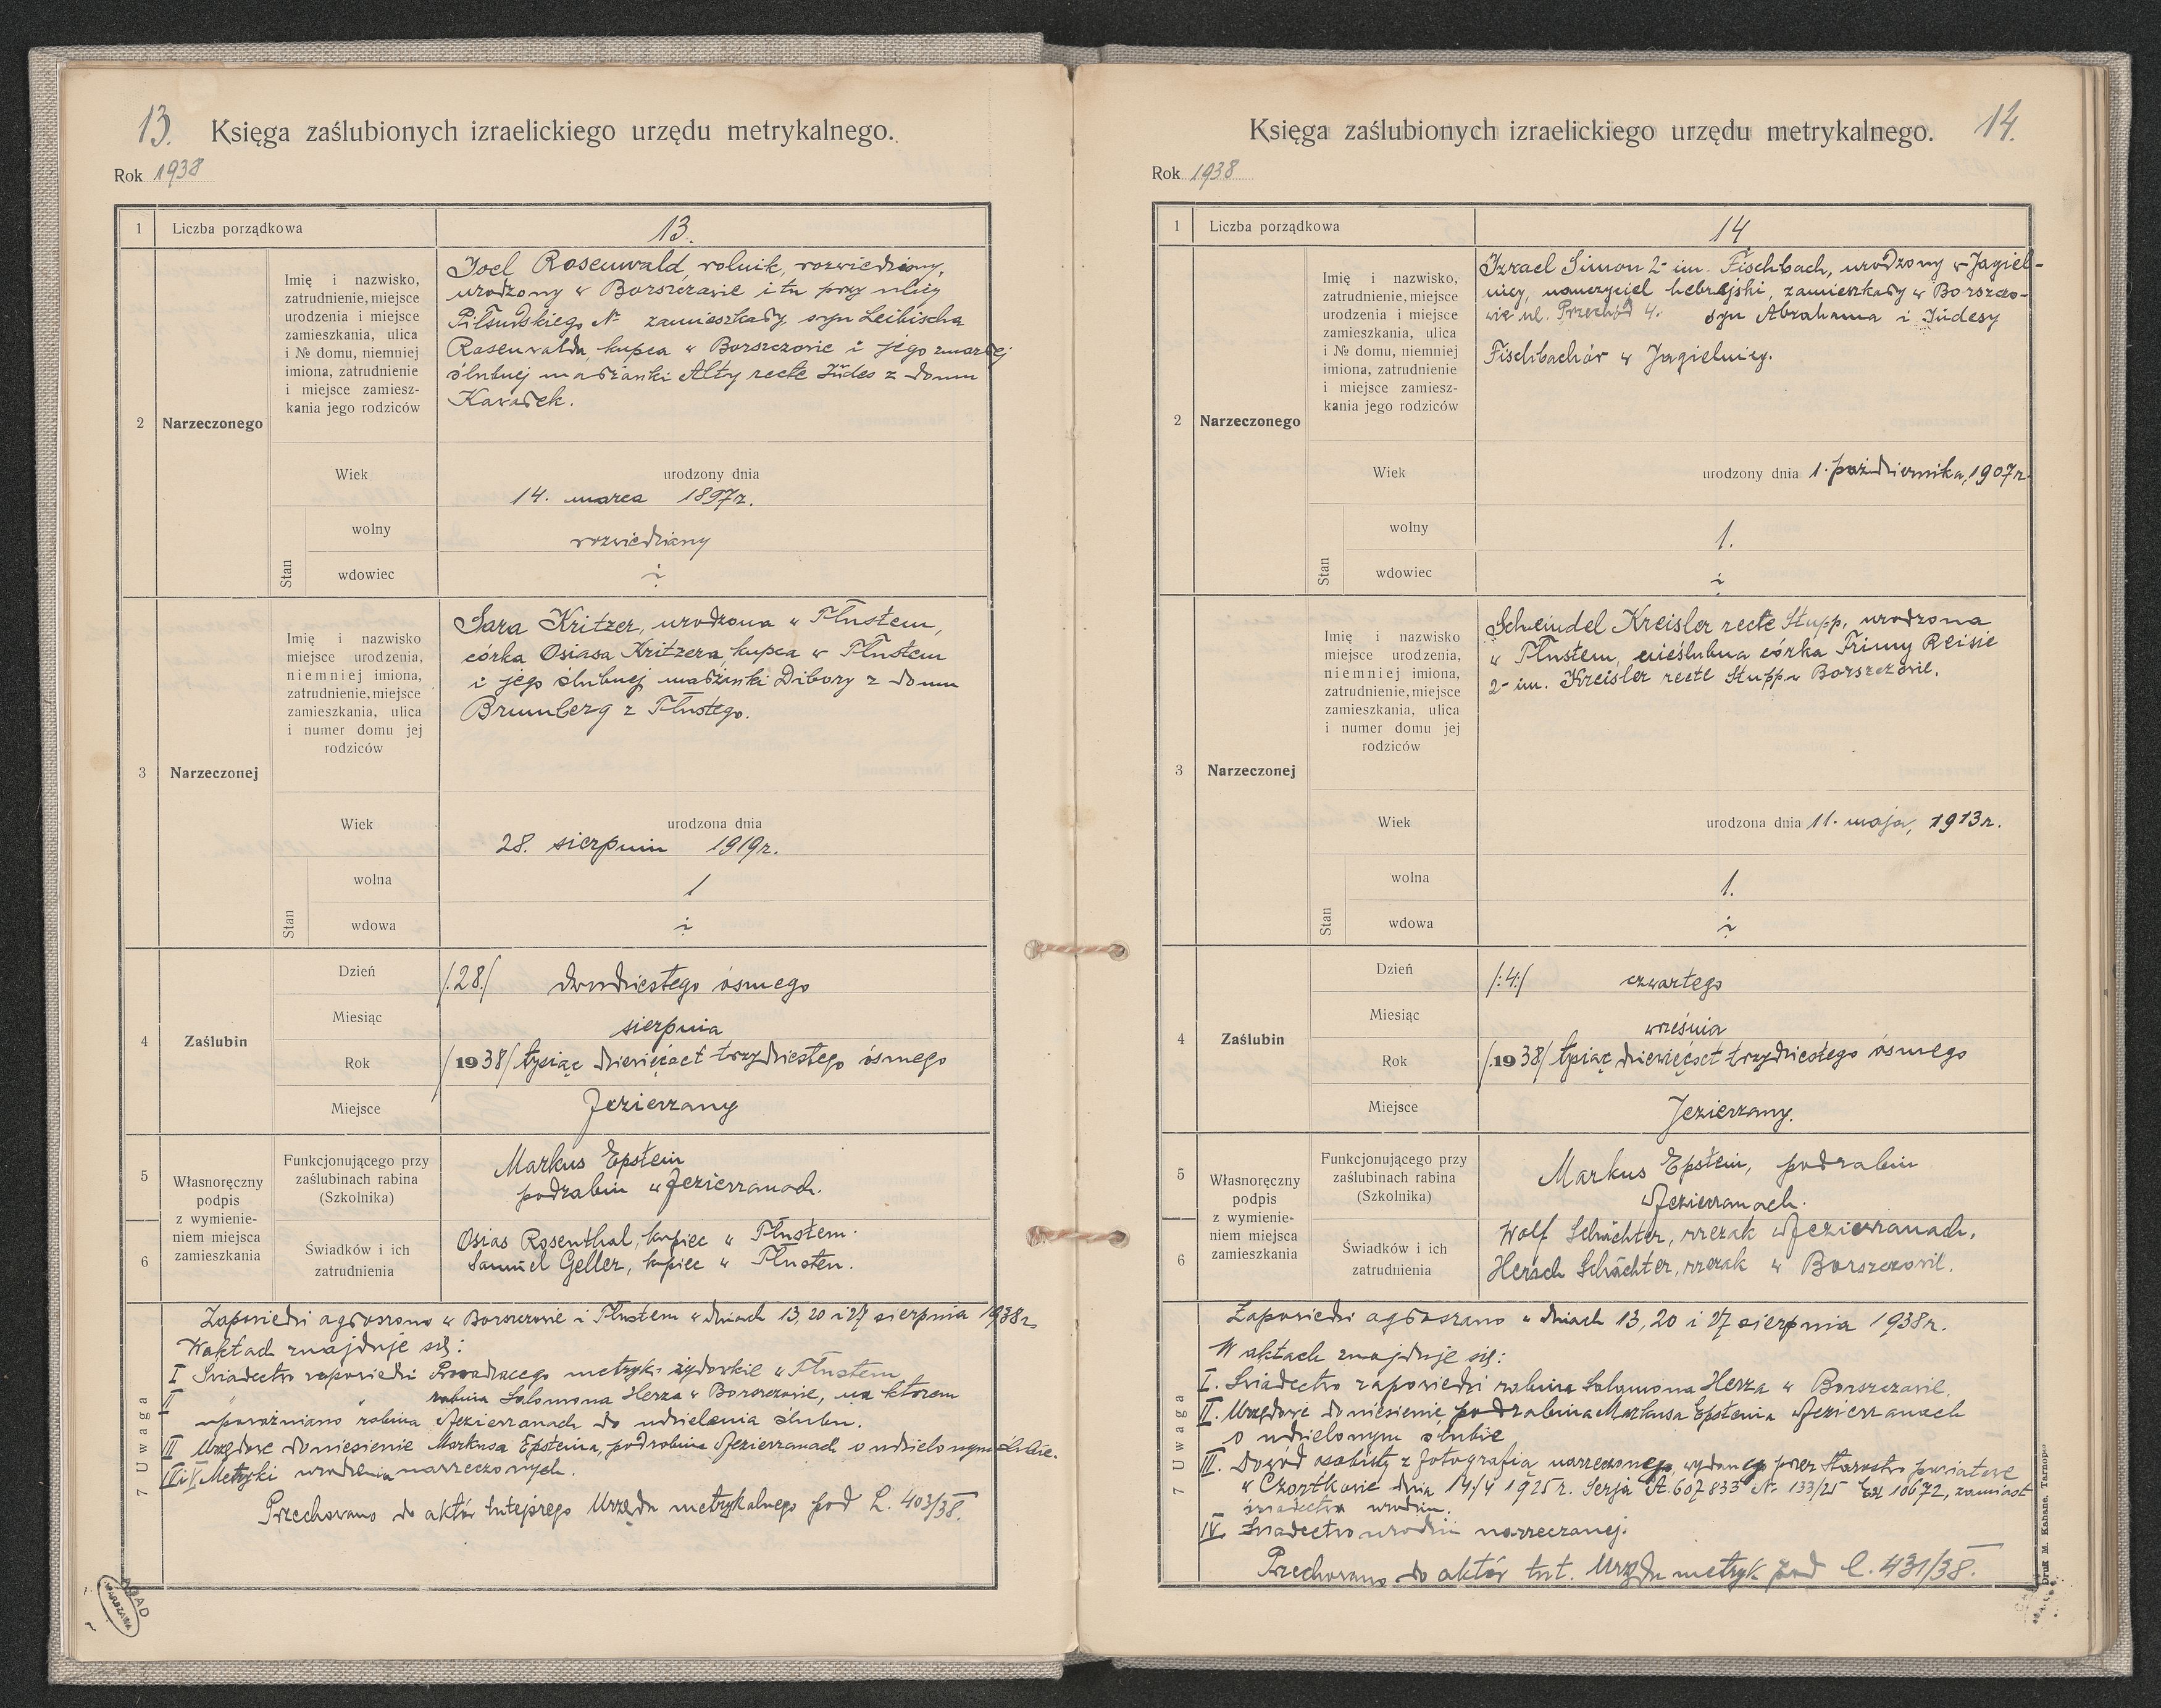 13.
Księga zaślubionych izraelickiego urzędu metrykalnego.
Rok 1938
1 Liczba porządkowa 13.
2 Narzeczonego
Imię i nazwisko,
zatrudnienie, miejsce
urodzenia i miejsce
zamieszkania, ulica
i № domu, niemniej
imiona, zatrudnienie
i miejsce zamiesz-
kania jego rodziców
Joel Rosenwald, rolnik, rozwiedziony,
urodzony w Borszczowie i tu przy ulicy
Piłsudskiego № zamieszkały, syn Leibischa
Rosenwalda, kupca w Borszczowie i jego zmarłej
ślubnej małżonki Alty recte Jüdes z domu
Kawałek.
Wiek urodzony dnia
14. marca 1897r.
Stan
wolny rozwiedziony
wdowiec
3 Narzeczonej
Imię i nazwisko
miejsce urodzenia,
niemniej imiona,
zatrudnienie, miejsce
zamieszkania, ulica
i numer domu jej
rodziców
Sara Kritzer, urodzona w Tłustem,
córka Osiasa Kritzera, kupca w Tłustem
i jego ślubnej małżonki Dibory z domu
Brumberg z Tłustego.
Wiek urodzona dnia
28. sierpnia 1919r.
Stan
wolna 1
wdowa
4 Zaślubin
Dzień /:28/ dwudziestego ósmego
Miesiąc sierpnia
Rok /1938/ tysiąc dziewięćset trzydziestego ósmego
Miejsce Jezierzany
5
6
Własnoręczny
podpis
z wymienie-
niem miejsca
zamieszkania
Funkcjonującego przy
zaślubinach rabina
(Szkolnika)
Markus Epstein
podrabin w Jezierzanach.
Świadków i ich
zatrudnienia
Osias Rosenthal, kupiec w Tłustem.
Samuel Geller, kupiec w Tłustem.
7 Uwaga
Zapowiedzi ogłoszono w Borszczowie i Tłustem w dniach 13, 20 i 27 sierpnia 1938r.
W aktach znajduje się:
I Świadectwo zapowiedzi Prowadzącego metryki żydowskie w Tłustem
II " " rabina Salomona Herza w Borszczowie, na którem
upoważniono rabina w Jezierzanach do udzielenia ślubu.
III Urzędowe doniesienie Markusa Epsteina, podrabina w Jezierzanach o udzielonym ślubie.
IV i V Metryki urodzenia narzeczonych.
Przechowano do aktów tutejszego Urzędu metrykalnego pod L. 403/38.
AGAD
WARSZAWA
14.
Księga zaślubionych izraelickiego urzędu metrykalnego.
Rok 1938
1 Liczba porządkowa 14
2 Narzeczonego
Imię i nazwisko,
zatrudnienie, miejsce
urodzenia i miejsce
zamieszkania, ulica
i № domu, niemniej
imiona, zatrudnienie
i miejsce zamiesz-
kania jego rodziców
Izrael Simon 2-im. Fischbach, urodzony w Jagiel-
nicy, nauczyciel hebrajski, zamieszkały w Borszczo-
wie ul. Przechód 4. syn Abrahama i Jüdesy
Fischbachów w Jagielnicy.
Wiek urodzony dnia 1. października, 1907r.
Stan
wolny 1.
wdowiec
3 Narzeczonej
Imię i nazwisko
miejsce urodzenia,
niemniej imiona,
zatrudnienie, miejsce
zamieszkania, ulica
i numer domu jej
rodziców
Scheindel Kreisler recte Stupp, urodzona
w Tłustem, nieślubna córka Frimy Reisie
2-im. Kreisler recte Stupp w Borszczowie.
Wiek urodzona dnia 11. maja, 1913r.
Stan
wolna 1.
wdowa
4 Zaślubin
Dzień /:4:/ czwartego
Miesiąc września
Rok /:1938/ tysiąc dziewięćset trzydziestego ósmego
Miejsce Jezierzany.
5
6
Własnoręczny
podpis
z wymienie-
niem miejsca
zamieszkania
Funkcjonującego przy
zaślubinach rabina
(Szkolnika)
Markus Epstein, podrabin
w Jezierzanach.
Świadków i ich
zatrudnienia
Wolf Schächter, rzezak w Jezierzanach.
Hersch Schächter, rzezak w Borszczowie.
7 Uwaga
Zapowiedzi ogłoszono w dniach 13, 20 i 27 sierpnia 1938r.
W aktach znajduje się:
I. Świadectwo zapowiedzi rabina Salomona Herza w Borszczowie.
II. Urzędowe doniesienie podrabina Markusa Epsteina w Jezierzanach
o udzielonym ślubie
III. Dowód osobisty z fotografią narzeczonego, wydany przez Starostwo powiatowe
w Czortkowie dnia 14/V 1925 r. Serja St. 607833 Nr. 133/25 10672, zamiast
świadectwa urodzin.
IV. Świadectwo urodzin narzeczonej.
Przechowano do aktów tut. Urzędu metryk pod l. 431/38.
Druk M. Kahane, Tarnop.